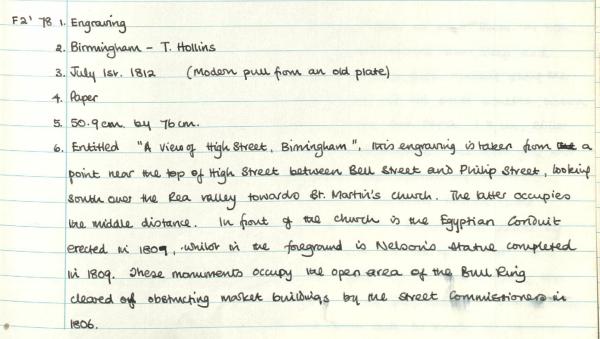 F2' 78 1. Engraving
2. Birmingham - T. Hollins
3. July 1st. 1812 (Modern pull from an old plate)
4. Paper
5. 50.9cm. by 76cm.
6. Entitled "A view of High Street, Birmingham", this engraving is taken from a
point near the top of High Street between Bell Street and Philip Street, looking
south over the Rea valley towards St. Martin's church. The latter occupies
the middle distance. In front of the church is the Egyptian Conduit
erected in 1809, whilst in the foreground is Nelson's statue completed
in 1809. These monuments occupy the open area of the Bull Ring
cleared of obstructing market buildings by the Street Commissioners in
1806.